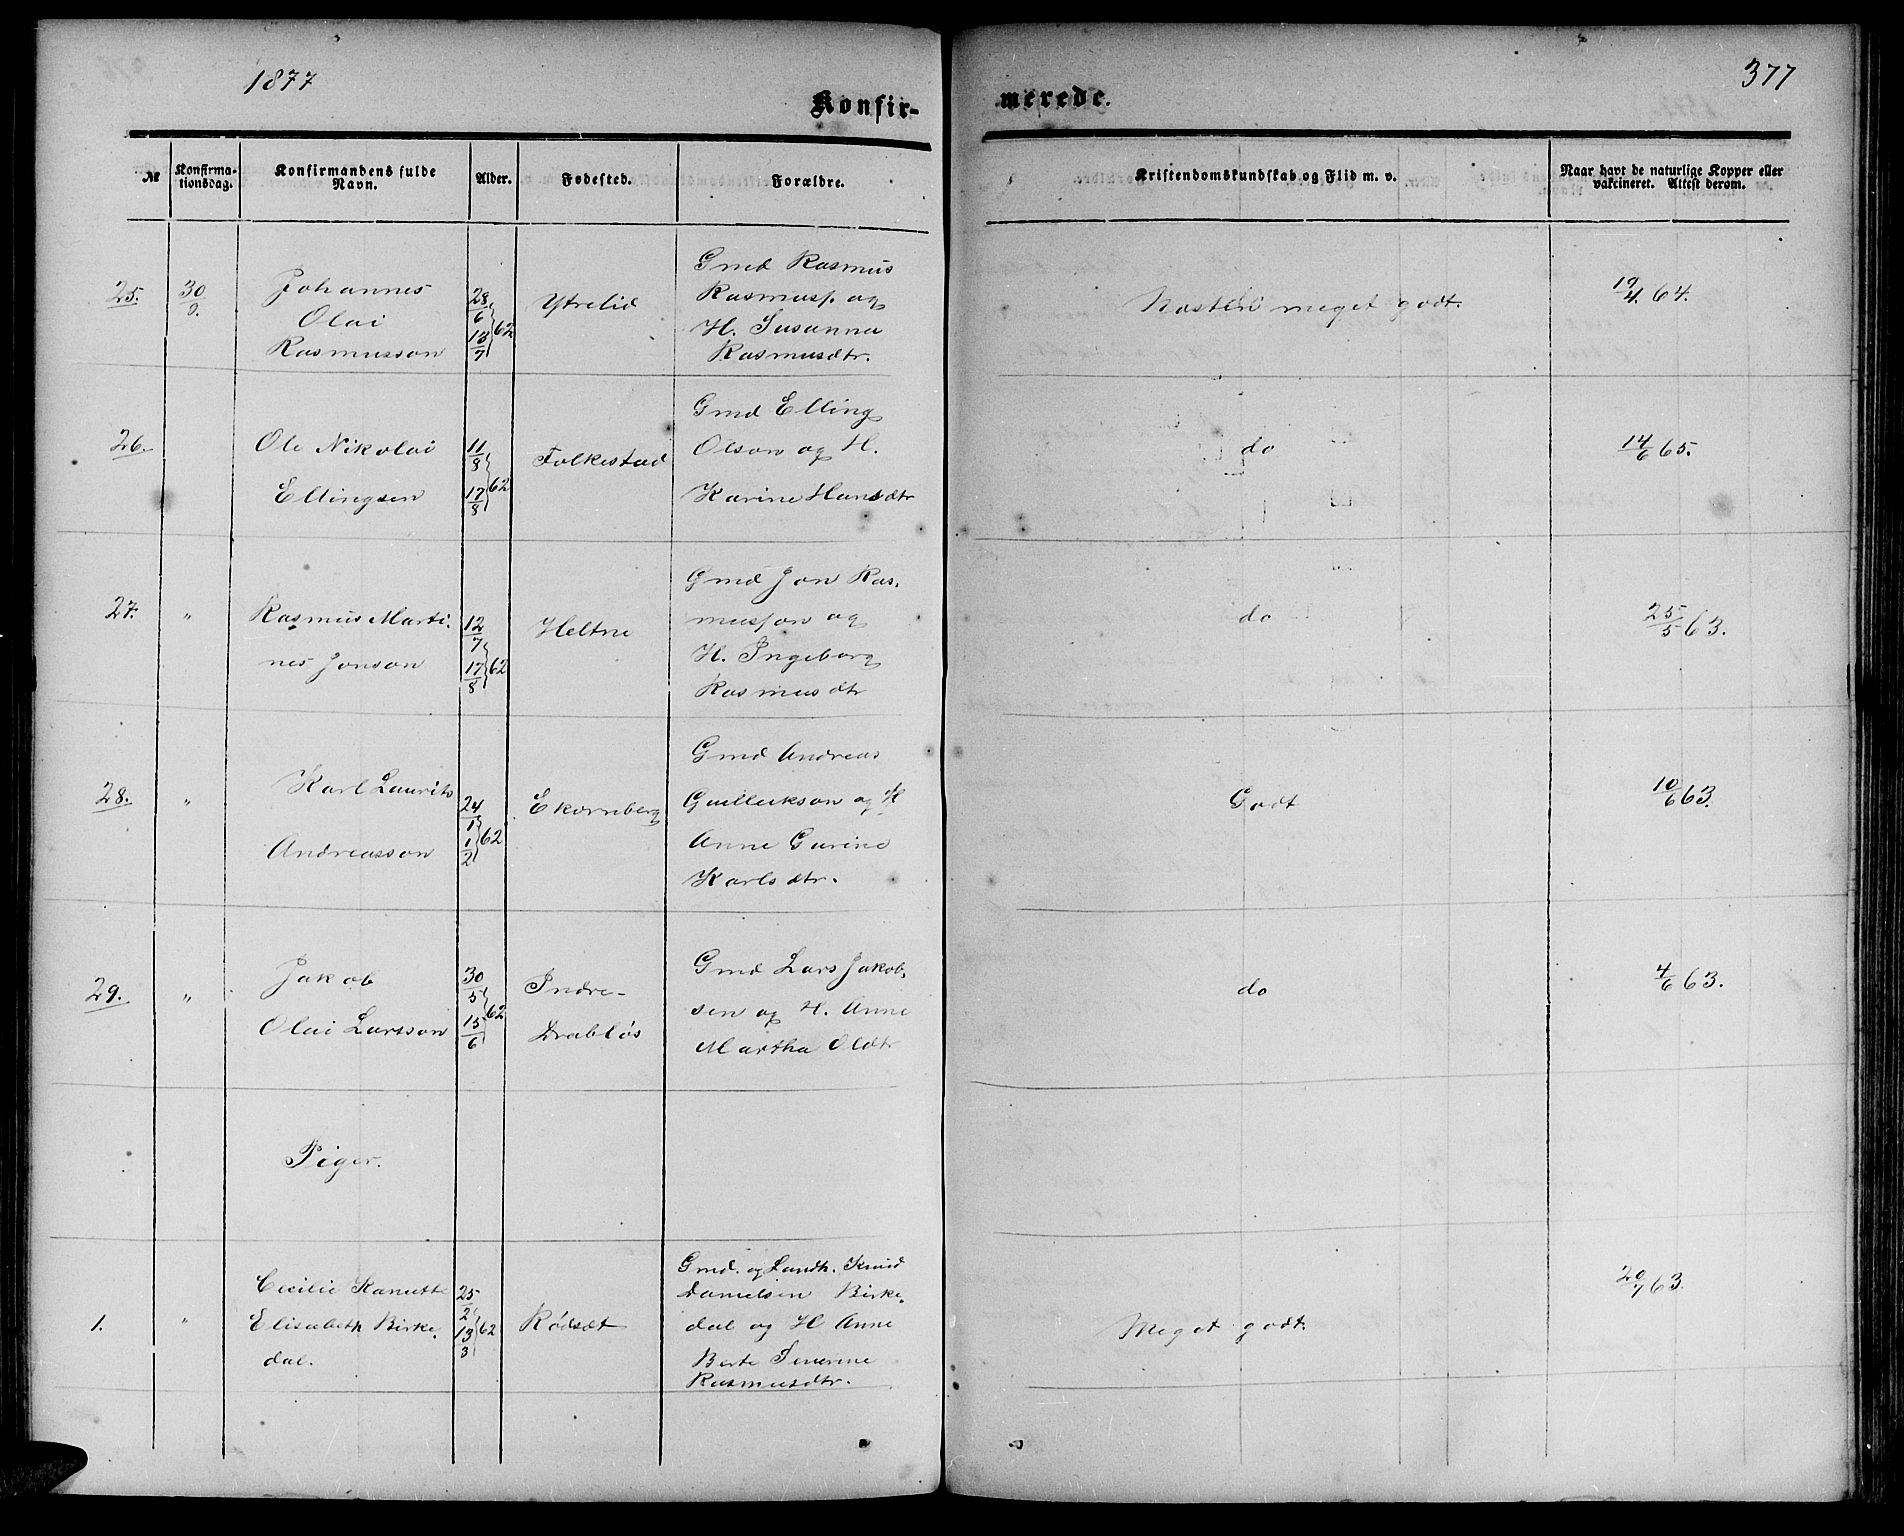 1877
377
Konfir-
merede.
№
Konfirma-
tionsdag.
Konfirmandens fulde
Navn.
Alder.
Fødested.
Forældre.
Kristendomskundskab og Flid m. v.
Naar havt de naturlige Kopper eller
vakcineret. Attest derom.
25.
30/9.
Johannes
Olai
Rasmusson
28/6 13/7 62
Ytrelid
Gmd Rasmus
Rasmuss. og
H. Susanna
Rasmusdtr.
Næsten meget godt.
19/4. 64.
26.
Ole Nikolai
Ellingsen
11/8 17/8 62
Folkestad
Gmd Elling
Olson og H.
Karine Hansdtr
do
14/6 65.
27.
"
Rasmus Marti-
nes Jonson
12/7 17/8 62
Heltne
Gmd Jon Ras-
musson og
H. Ingeborg
Rasmusdtr
do
25/5 63.
28.
"
Karl Laurits
Andreasson
24/1 1/2 62
Ekornberg
Gmd Andreas
Gullickson og H
Anne Gurine
Karlsdtr.
Godt
10/6 63.
29.
"
Jakob
Olai Larsson
30/5 15/6 62
Indre-
Drabløs
Gmd Lars Jakob-
sen og H. Anne
Martha Oldtr
do
4/6 63.
Piger.
1.
"
Cecilie Kanutte
Elisabeth Birke-
dal.
25/2 13/3 62
Rødsæt
Gmd. og Landh. Knud
Danielsen Birke-
dal og H Anne
Berte Severine
Rasmusdtr.
Meget godt.
29/7 63.